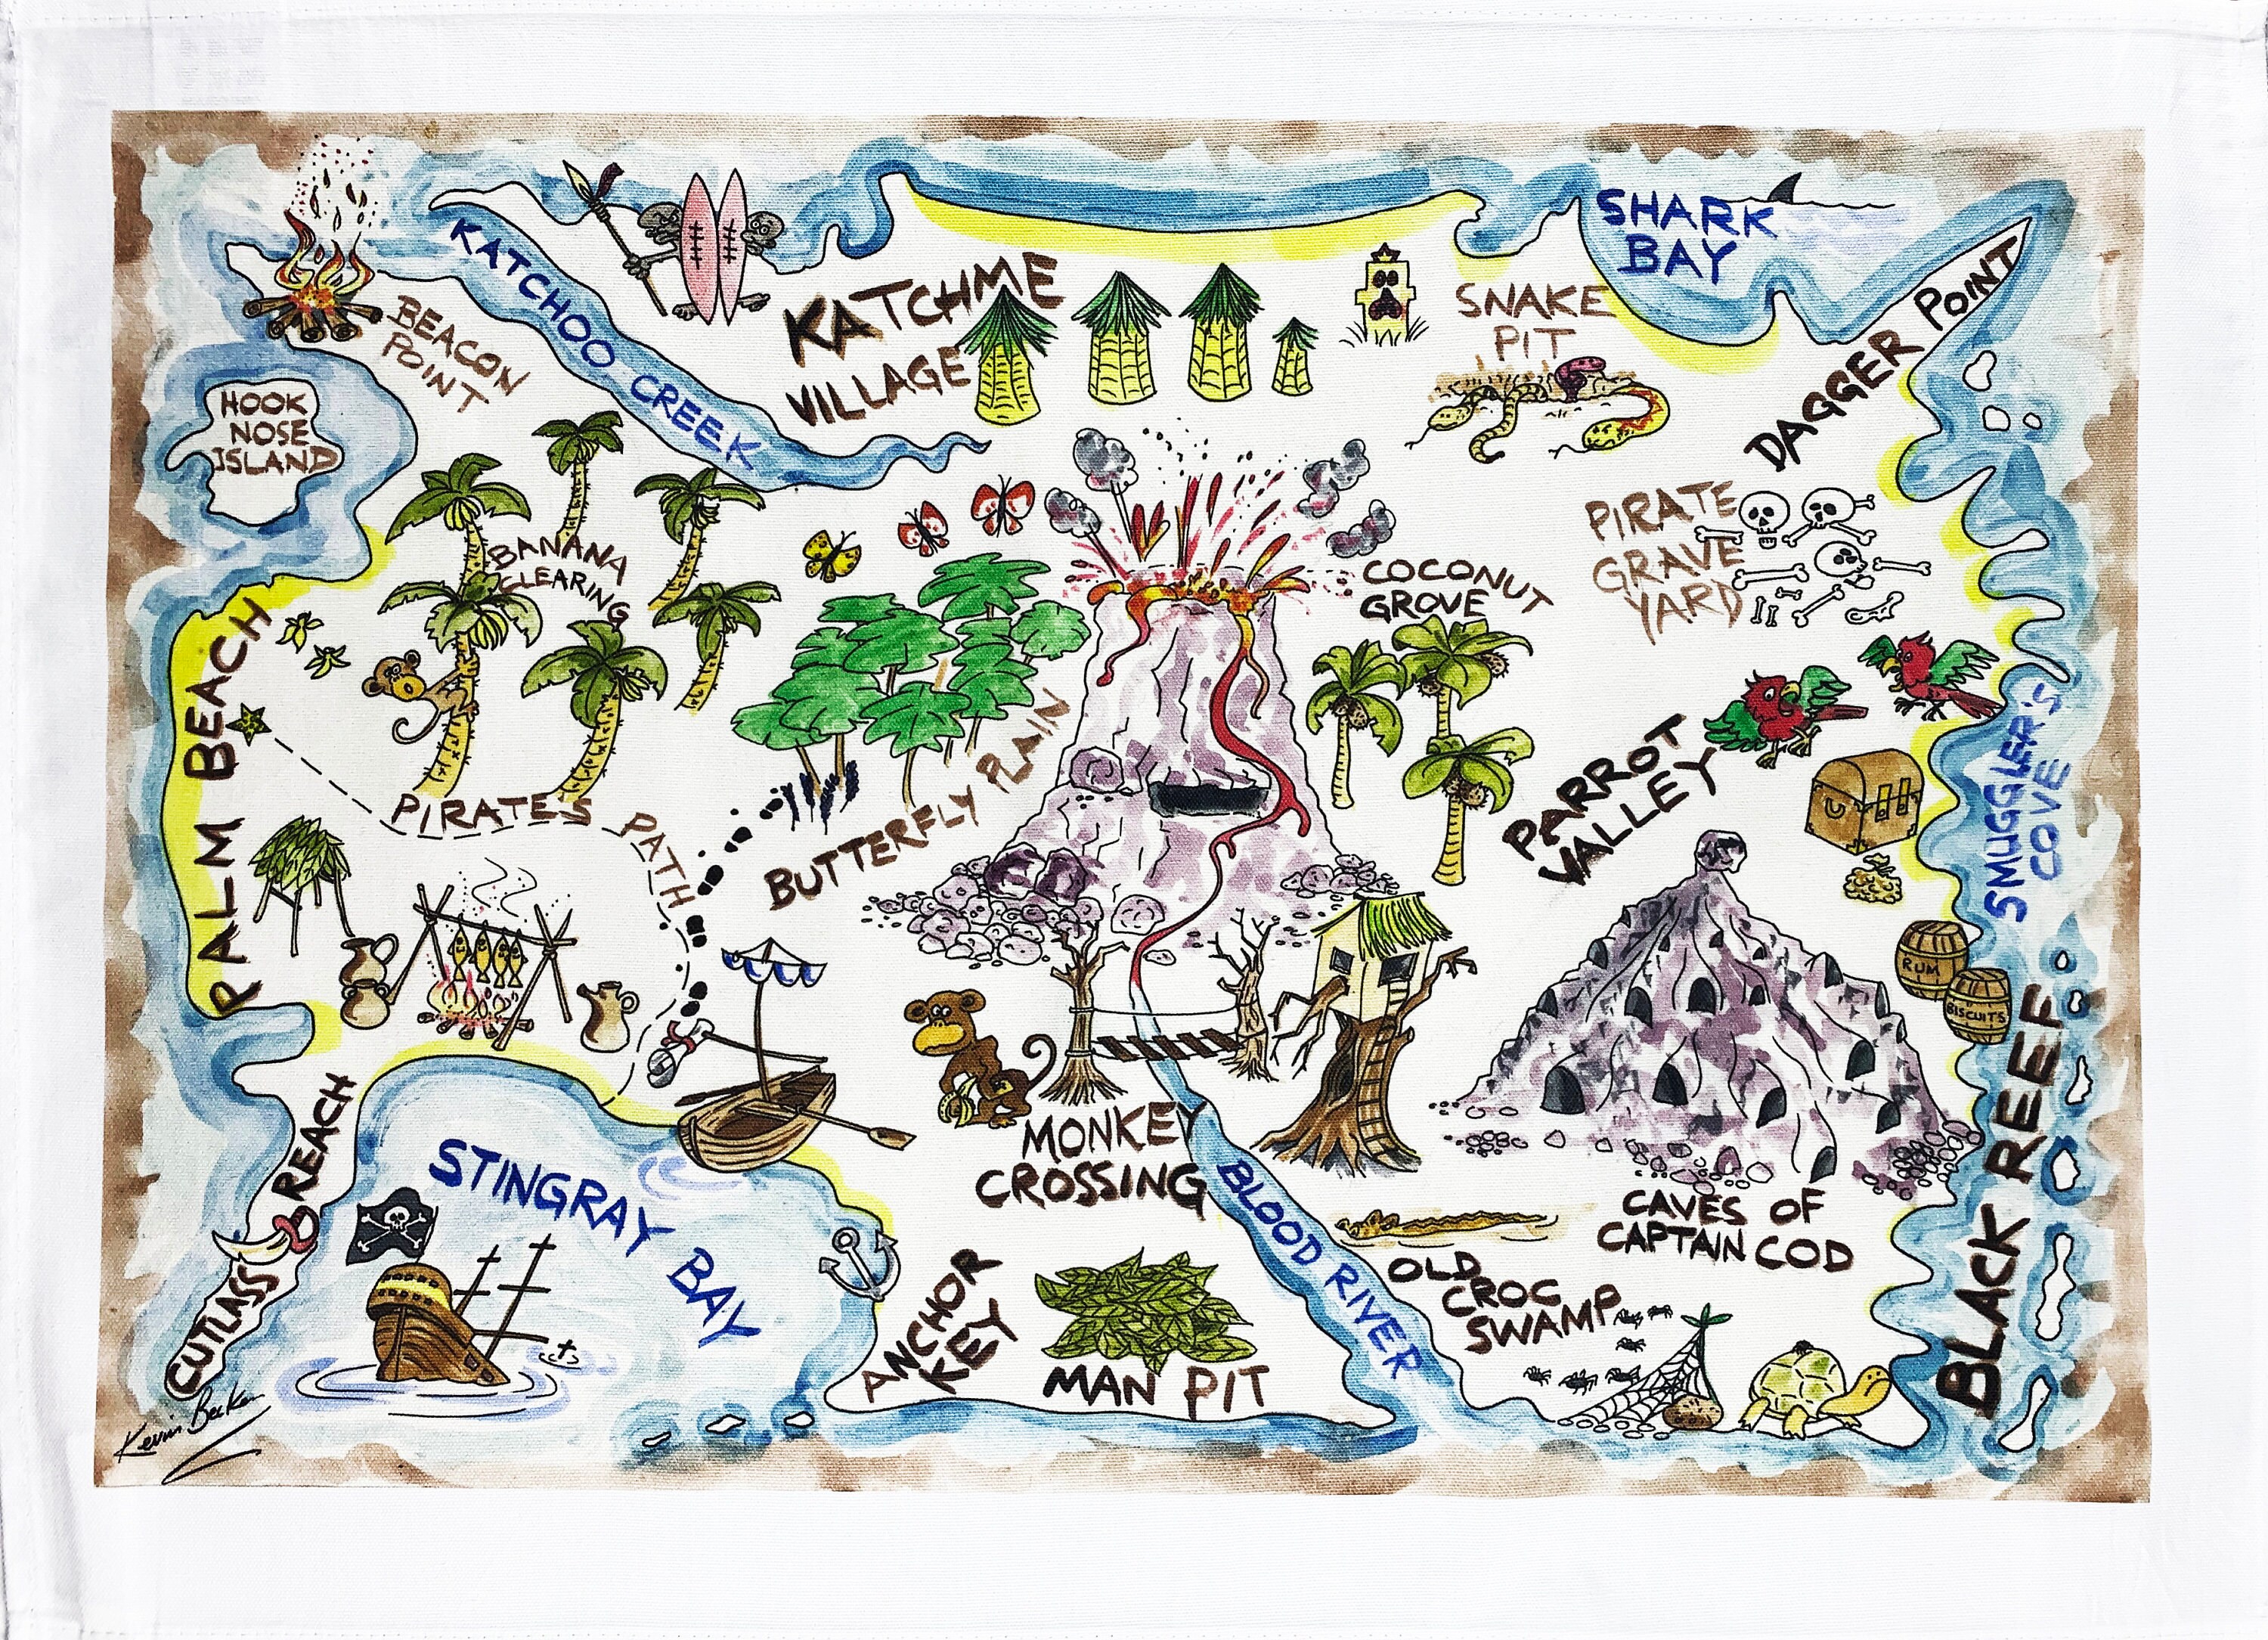 SHARK
BAY
KATCHOO CREEK
KATCHME
VILLAGE
SNAKE
PIT
DAGGER POINT
BEACON
POINT
HOOK
NOSE
ISLAND
PIRATE
GRAVE
YARD
BANANA
CLEARING
COCONUT
GROVE
PALM BEACH
BUTTERFLY PLAIN
PARROT
VALLEY
SMUGGLER'S
COVE
PIRATE'S PATH
RUM
BISCUITS
BLACK REEF
CUTLASS REACH
STINGRAY BAY
MONKEY
CROSSING
BLOOD RIVER
CAVES OF
CAPTAIN COD
OLD
CROC
SWAMP
ANCHOR
KEY
MAN PIT
Kevin Becken